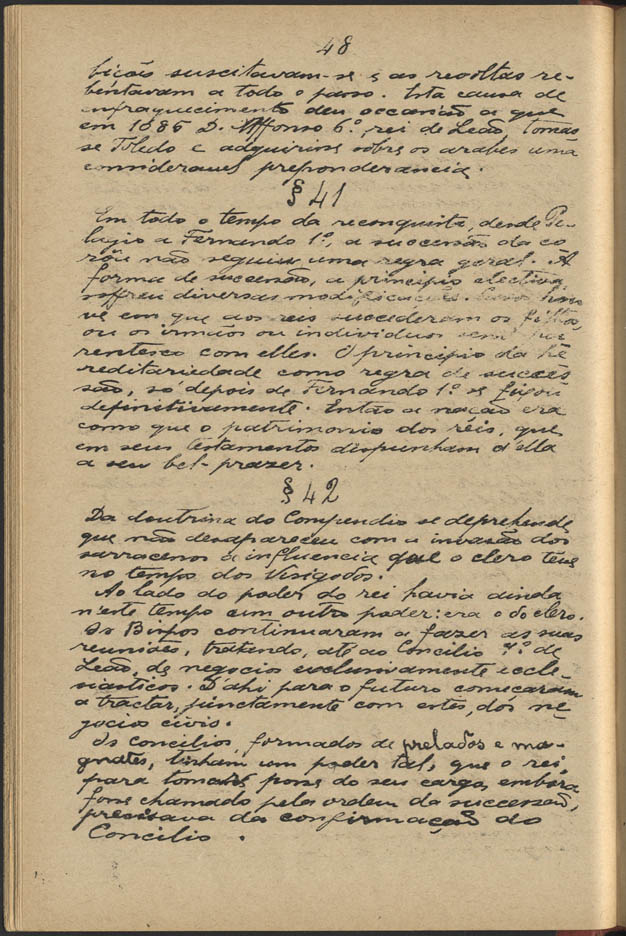 48
bições suscitavam-se e as revoltas re-
bentavam a todo o passo. Esta causa de
enfraquecimento deu occasião a que
em 1085 D. Affonso 6º, rei de Leão, tomas
se Toledo e adquirisse sobre os arabes uma
consideravel preponderancia.
§ 41
Em todo o tempo da reconquista, desde Pe-
lagio a Fernando 1º, a successão da co
rôa não seguiu uma regra geral. A
forma de successão, a principio electiva,
soffreu diversas modificações. hou
ve em que aos reis succederam os filhos,
ou os irmãos ou individuos sem pa
rentesco com elles. O principio da he
reditariedade como regra de succes
são, só depois de Fernando 1º se fixou
definitivamente. Então a nação era
como que o patrimonio dos réis, que
em seus testamentos dispunham d'ella
a seu bel-prazer.
§ 42
Da doutrina do Compendio se deprehende
que não desappareceu com a invasão dos
sarracenos a influencia que o clero teve
no tempo dos Visigodos.
Ao lado do poder do rei havia ainda
n'este tempo um outro poder: era o do clero.
Os Bispos continuaram a fazer as suas
reuniões, tratando, até ao Concilio 7º de
Leão, de negocio exclusivamente eccle-
siasticos. D'ahi para o futuro começaram
a tractar, junctamente com estes, dos ne
gocios civis.
Os concilios, formados de prelados e ma-
gnates, tinham um poder tal, que o rei,
para tomar posse do seu cargo, embora
fosse chamado pela ordem da successão,
precisava da confirmação do
Concilio.